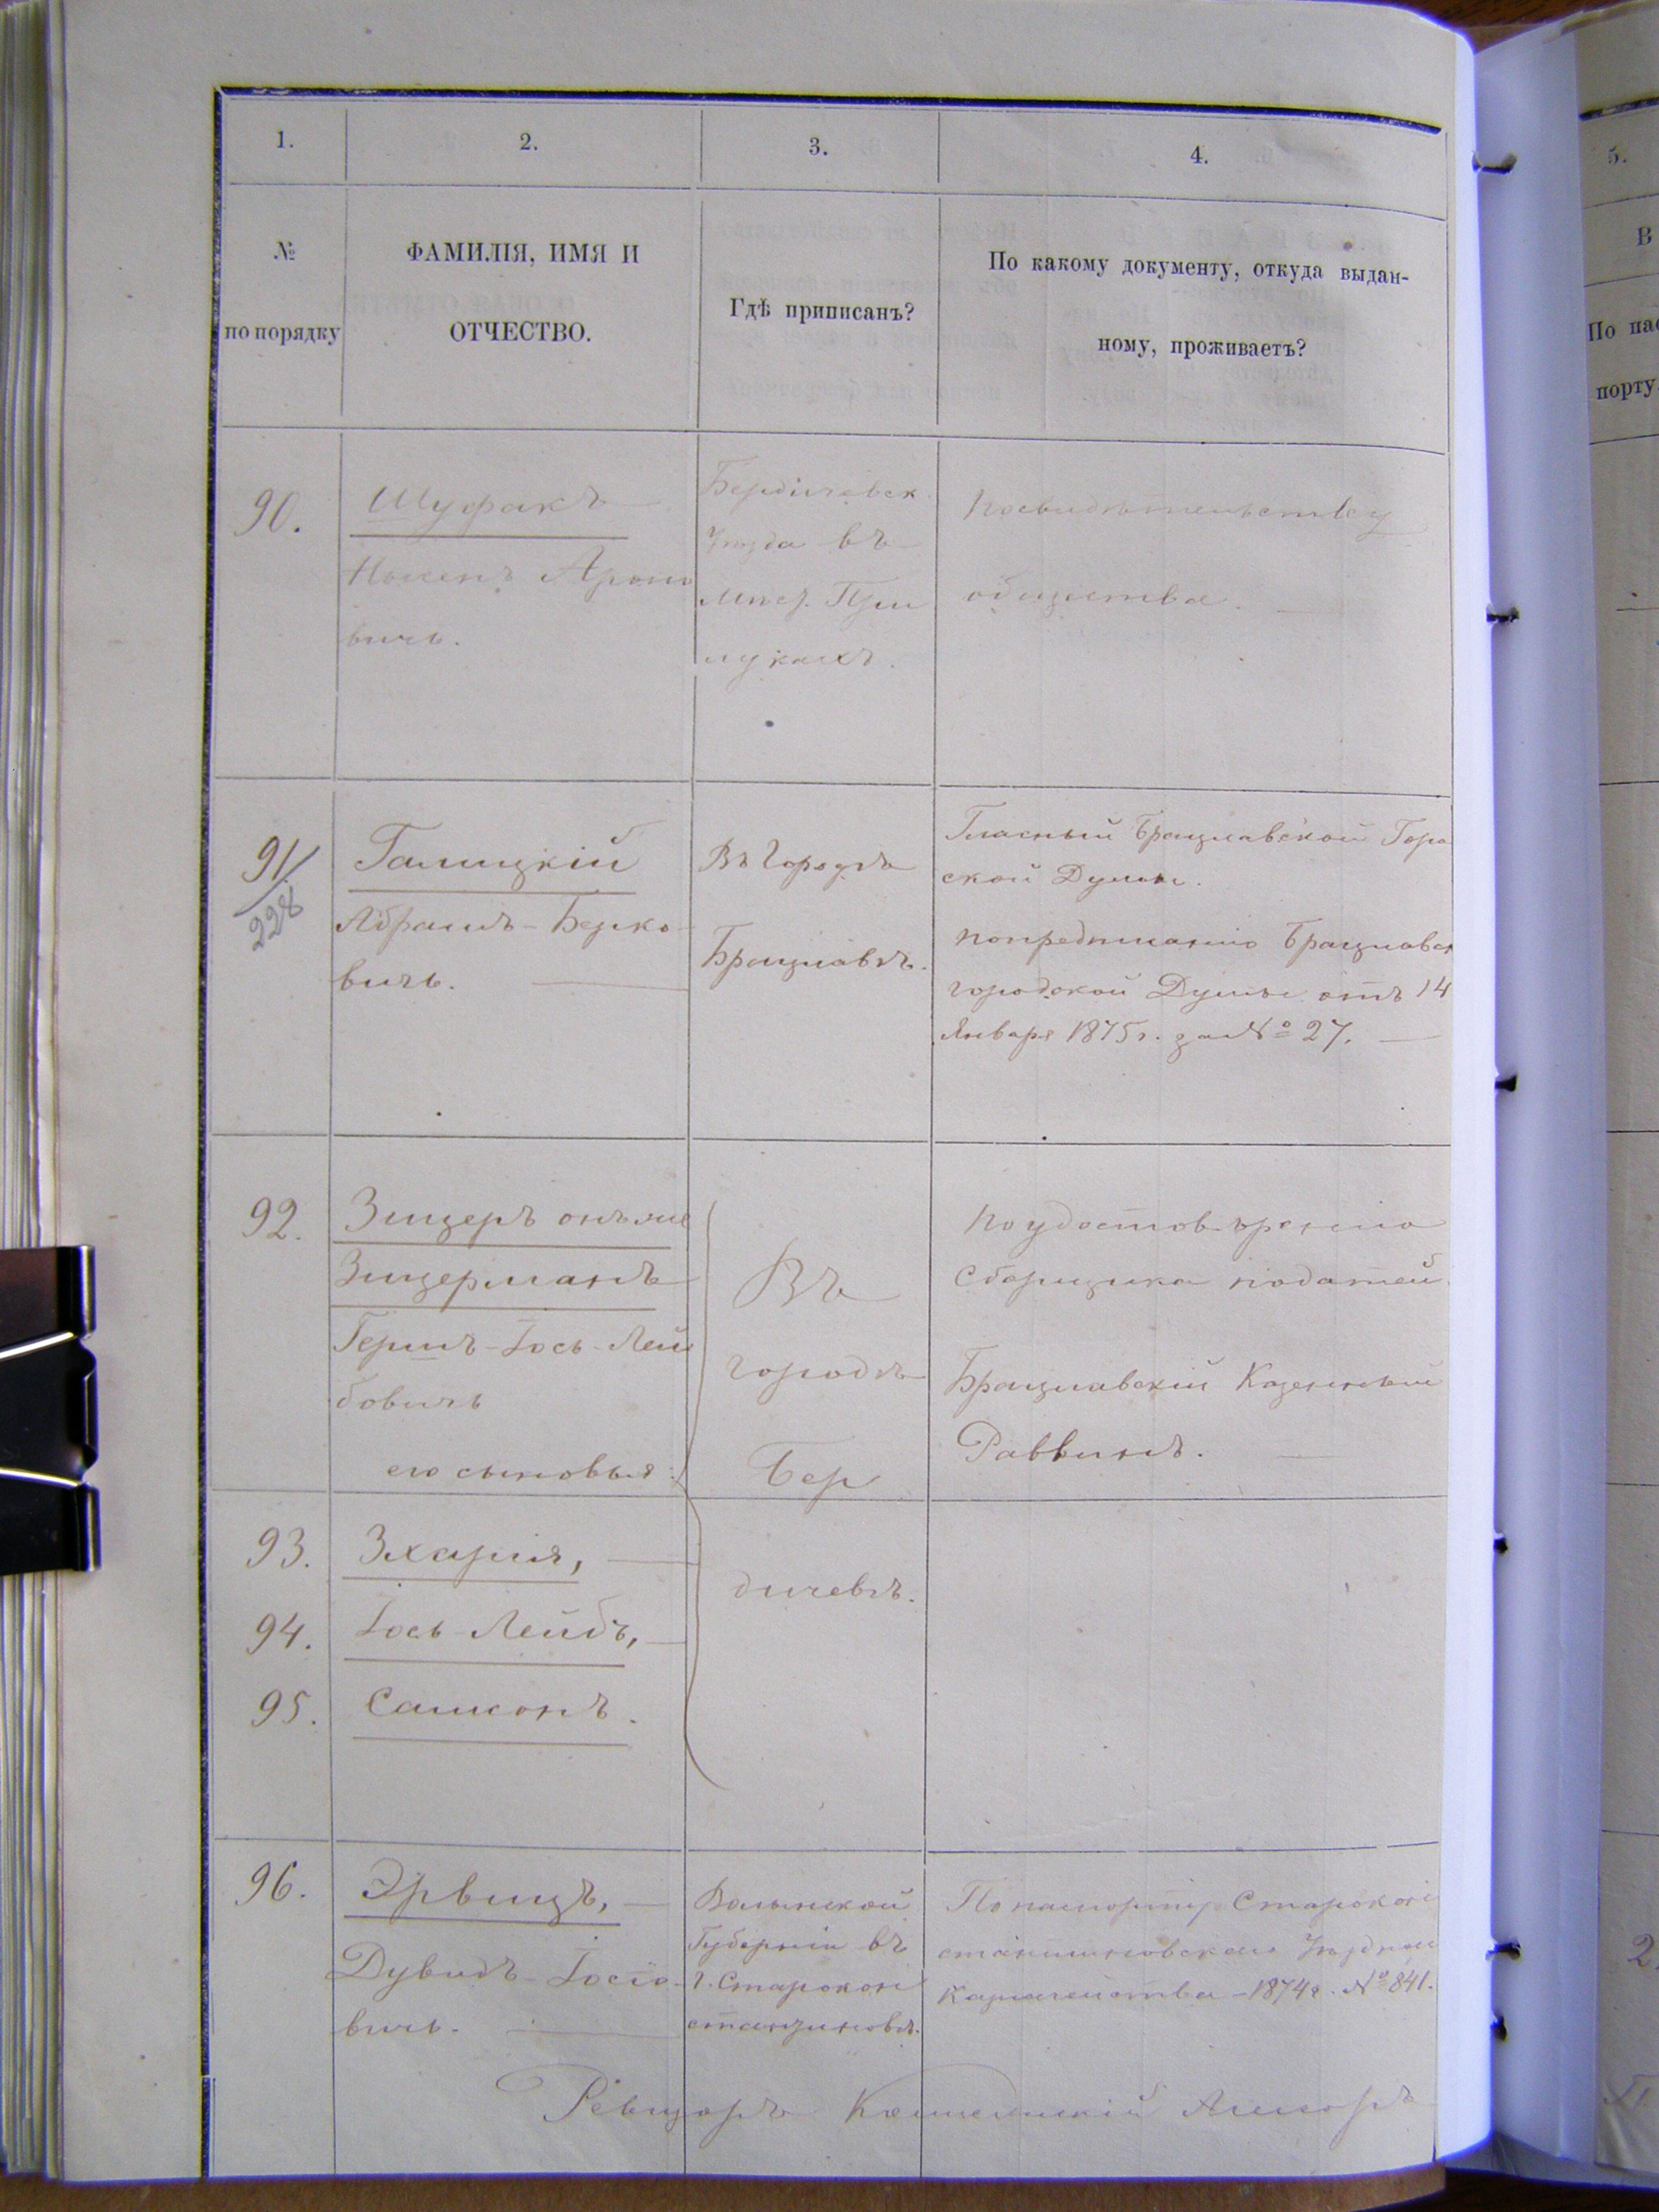 1.
2.
3.
4.
№
по порядку
ФАМИЛІЯ, ИМЯ И
ОТЧЕСТВО.
Гдѣ приписанъ?
По какому документу, откуда выдан-
ному, проживаетъ?
90.
Шуфакъ
Арон
вичъ.
Бердичевск.
Уѣзда въ
мѣст. При
лукахъ.
По свидѣтельству
общества.
91/
228
Галицкій
Абрамъ-Берко
вичъ.
Въ Городѣ
Брацлавѣ.
Гласный Брацлавской Горо
ской Думы.
По предписанію Брацлавск
городской Думы отъ 14
Января 1875 г. за № 27.
92.
Зицеръ онъ же
Зицерманъ
Гершъ-Іось-Лей
бовичъ
его сыновья:
Въ
городѣ
Бер
дичевѣ.
По удостовѣренію
Сборщика податей
Брацлавскій Казенный
Раввинъ.
93.
Зхарія,
94.
Іось-Лейбъ,
95.
Самсонъ.
96.
Эрвицъ,
Дувидъ-Іосіо-
вичъ.
Волынской
Губерніи въ
г. Старокон
стантиновѣ.
По паспорту Старокон
стантиновскаго Уѣздна
Казначейства - 1874 г. № 841.
5.
В
По пас
порту
2